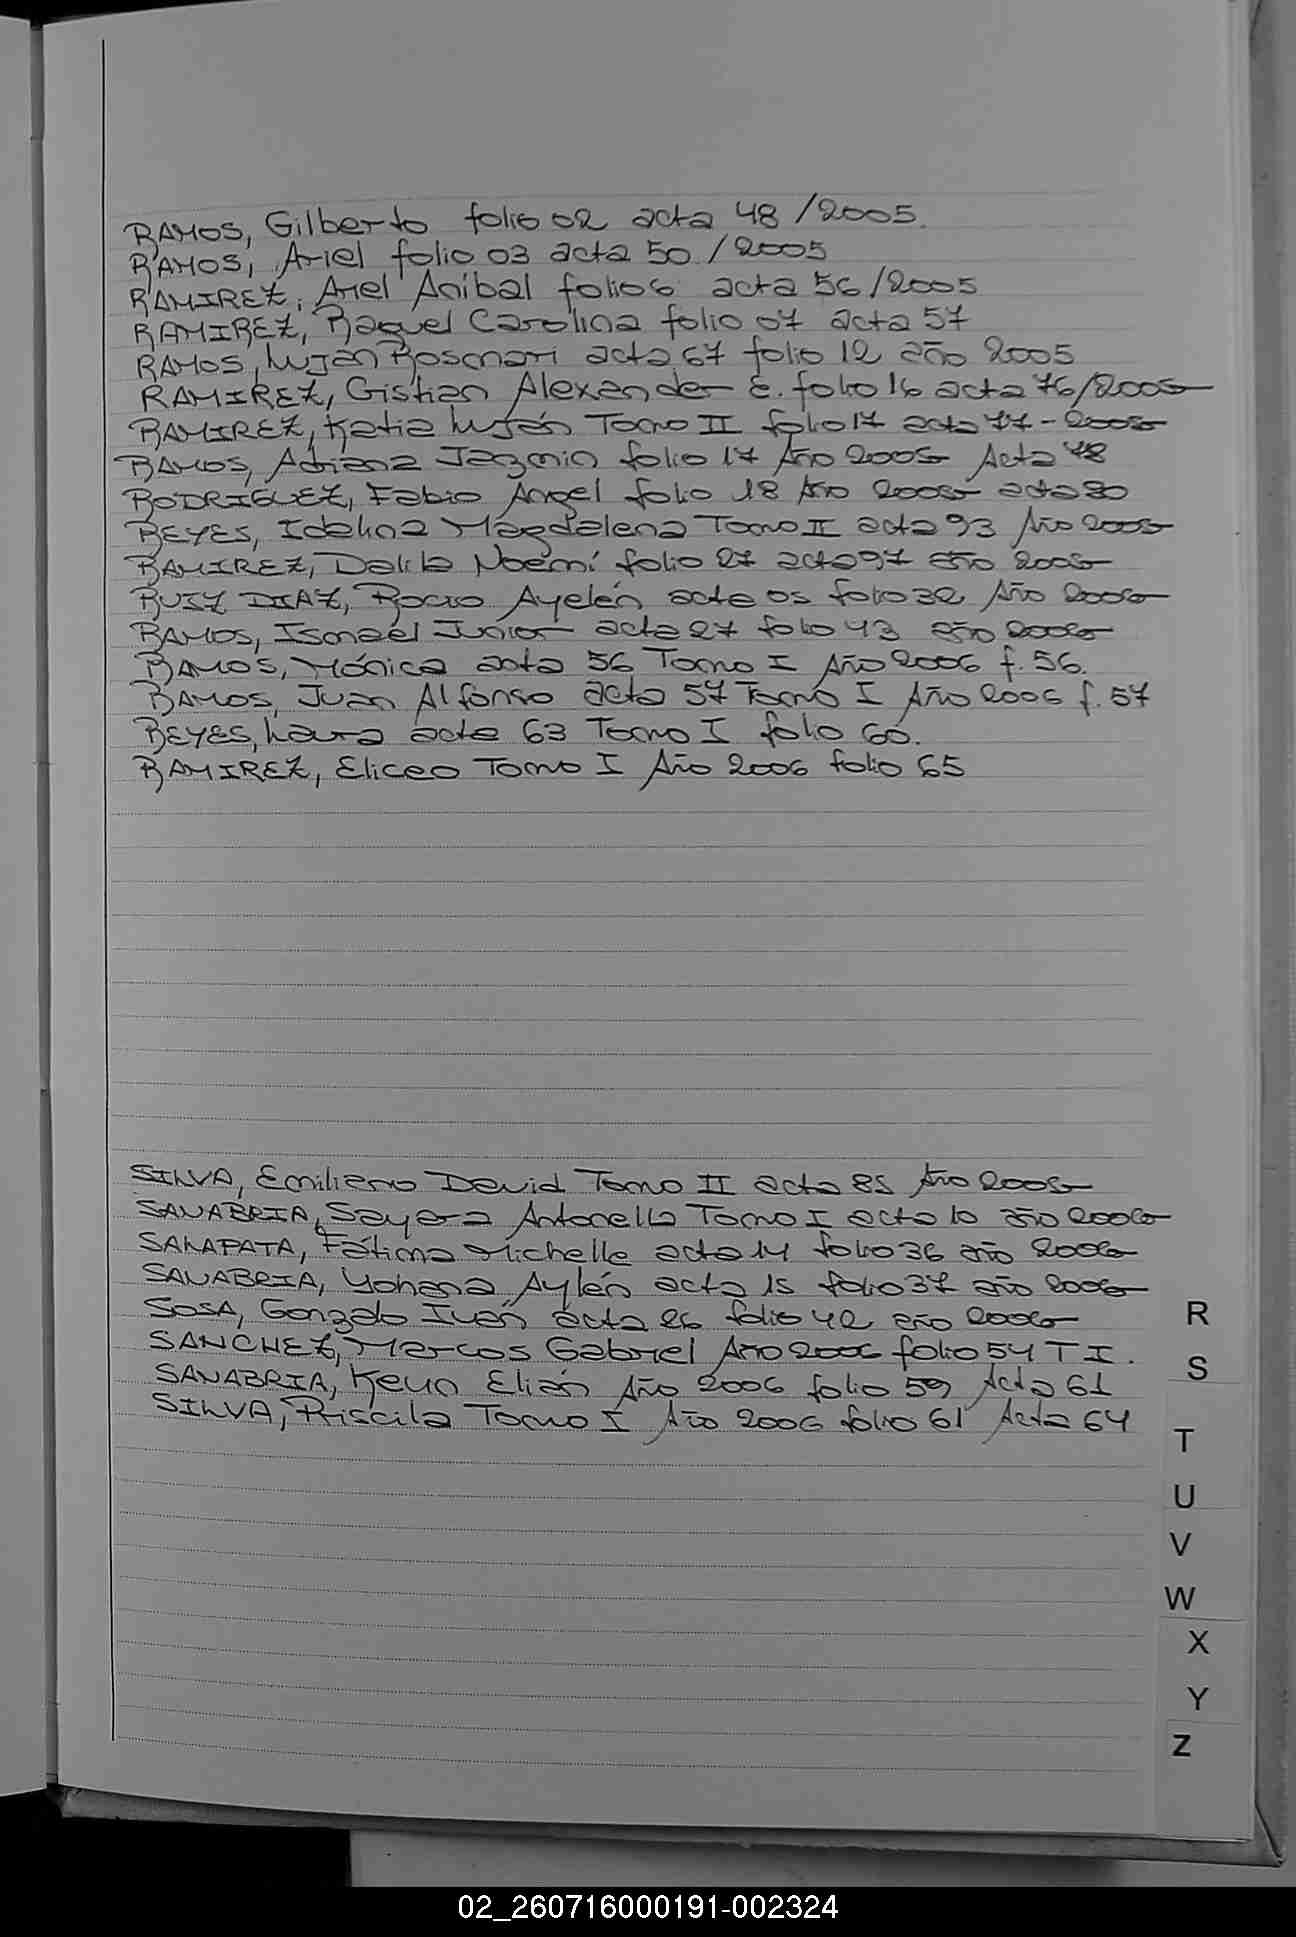 RAMOS, Gilberto folio 02 acta 48 /2005.
RAMOS, Ariel folio 03 acta 50 /2005
RAMIREZ, Ariel Anibal folio 6 acta 56/2005
RAMIREZ, Raquel Carolina folio 07 acta 57
RAMOS, Luján Rosmari acta 67 folio 12 año 2005
RAMIREZ, Cistian Alexander E. folio 16 acta 76/2005
RAMIREZ, Katia Luján Tomo II folio 17 acta 77-2005
RAMOS, Adriana Jazmin folio 17 Año 2005 Acta 78
RODRIGUEZ, Fabio Angel folio 18 Año 2005 acta 80
REYES, Idelina Magdalena Tomo II acta 93 Año 2005
RAMIREZ, Dalila Noemí folio 27 acta 97 año 2005
RUIZ DIAZ, Rocio Ayelén acta 05 folio 32 Año 2006
RAMOS, Ismael Junior acta 27 folio 43 año 2006
RAMOS, Mónica acta 56 Tomo I Año 2006 f. 56.
RAMOS, Juan Alfonso acta 57 Tomo I Año 2006 f. 57
REYES, Laura acta 63 Tomo I folio 60.
RAMIREZ, Eliceo Tomo I Año 2006 folio 65
SILVA, Emiliano David Tomo II acta 85 Año 2005
SANABRIA, Sayara Antonella Tomo I acta 10 año 2006
SALAPATA, Fátima Michelle acta 14 folio 36 año 2006
SANABRIA, Yohana Aylén acta 15 folio 37 año 2006
SOSA, Gonzalo Iván acta 26 folio 42 año 2006
SANCHEZ, Marcos Gabriel Año 2006 folio 54 T I.
SANABRIA, Keun Elián Año 2006 folio 59 Acta 61
SILVA, Priscila Tomo I Año 2006 folio 61 Acta 64
R
S
T
U
V
W
X
Y
Z
02_260716000191-002324